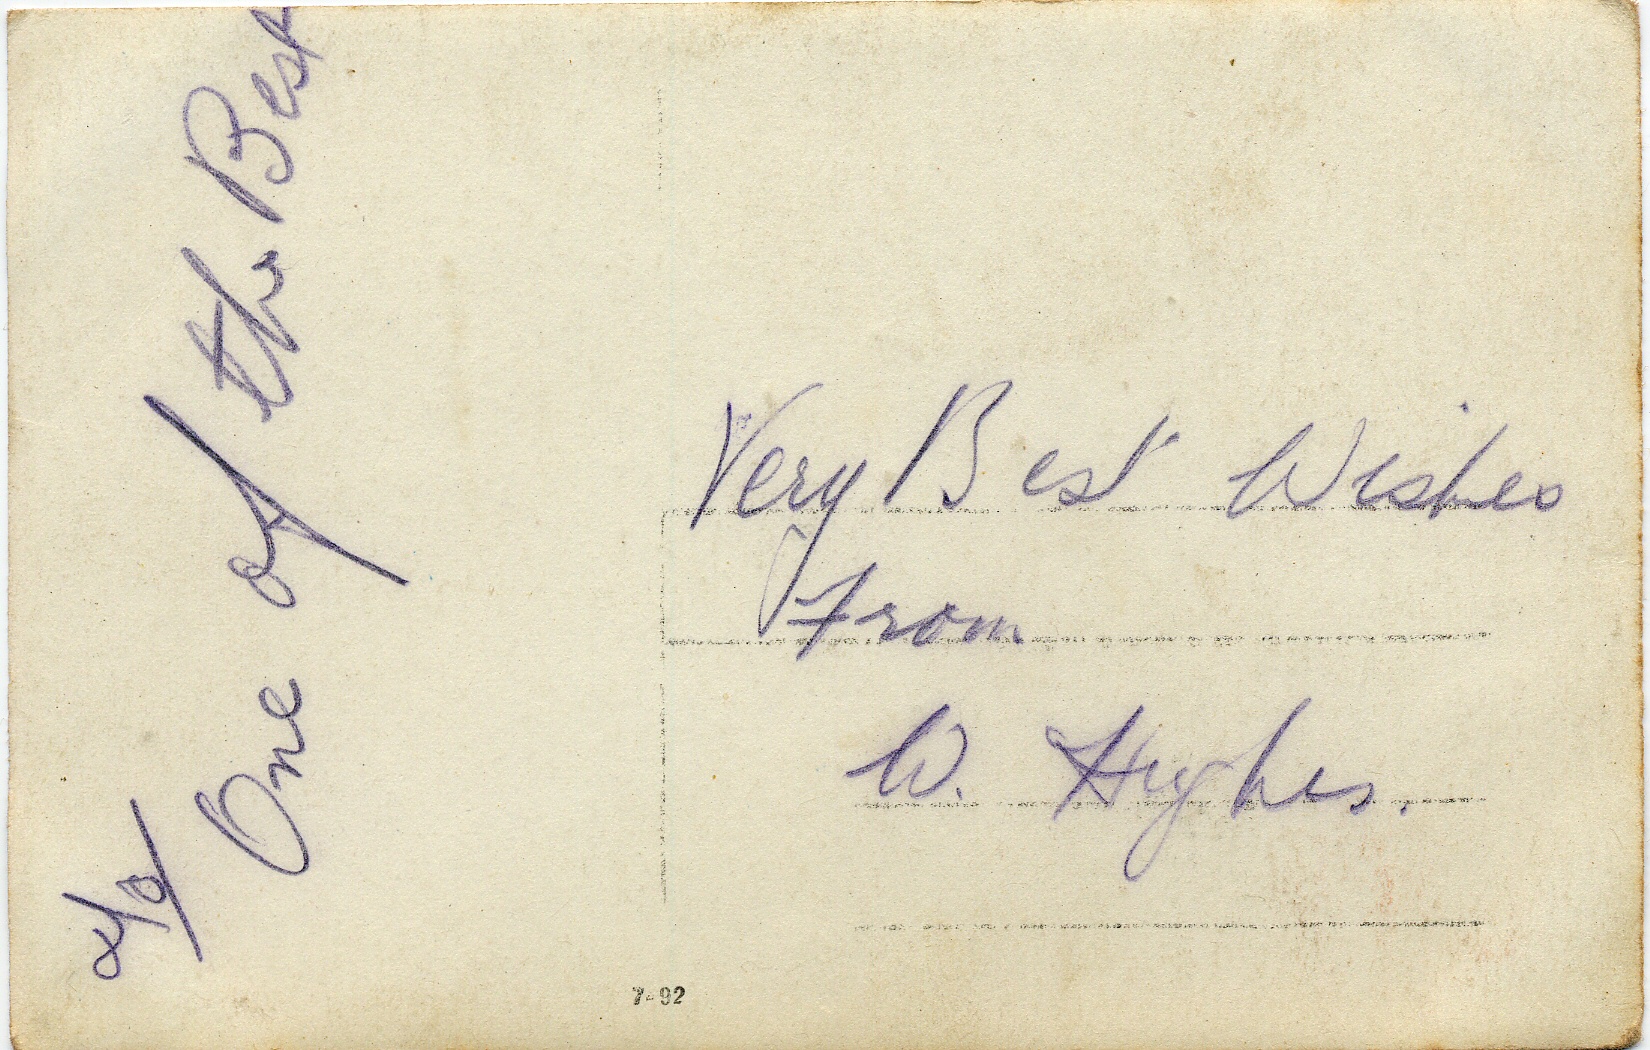 One of the Best
Very Best Wishes
From
W. Hughes.
7-92